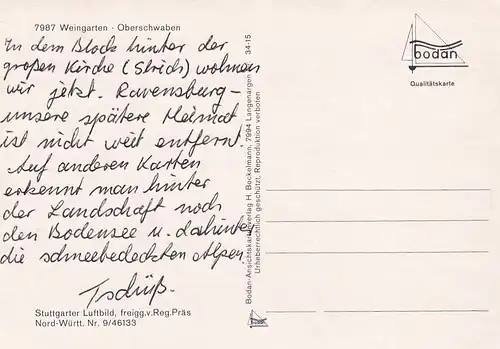 7987 Weingarten · Oberschwaben
In dem Block hinter der
großen Kirche (Strich) wohnen
wir jetzt. Ravensburg –
unsere spätere Heimat
ist nicht weit entfernt.
Auf anderen Karten
erkennt man hinter
der Landschaft noch
den Bodensee u. dahinter
die schneebedeckten Alpen.
Tschüß.
Stuttgarter Luftbild, freigg.v.Reg.Präs
Nord-Württ. Nr. 9/46133
34-15
Bodan-Ansichtskartenverlag H. Bockelmann, 7994 Langenargen
Urheberrechtlich geschützt, Reproduktion verboten
bodan
Qualitätskarte
bodan